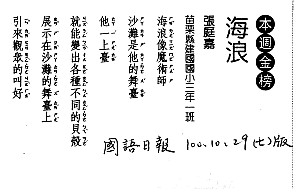 本週金榜
海浪
苗栗縣建國國小三年一班
張庭嘉
海浪像魔術師
沙灘是他的舞臺
他一上臺
就能變出各種不同的貝殼
展示在沙灘的舞臺上
引來觀眾的叫好
國語日報 100.10.29(七)版